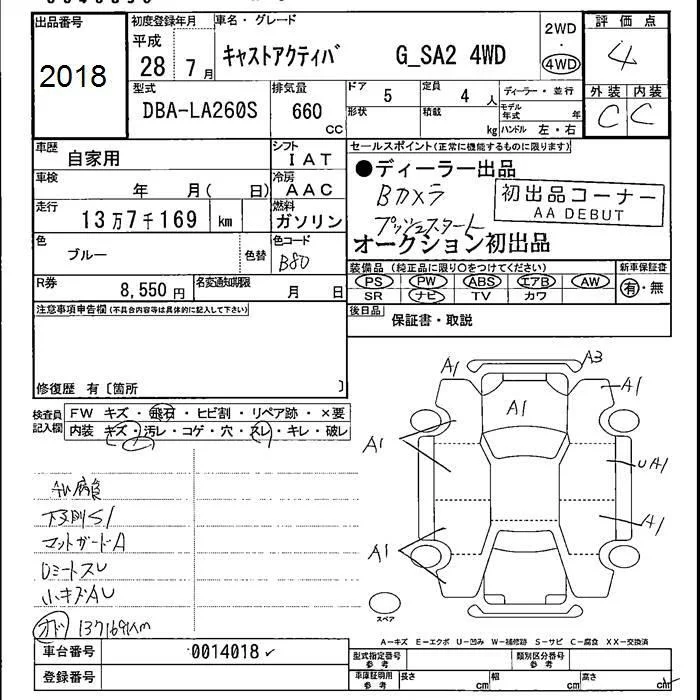 出品番号
2018
初度登録年月
平成
28 7月
車名・グレード
キャストアクティバ G_SA2 4WD
2WD
・
4WD
評価点
4
外装 内装
C C
型式
DBA-LA260S
排気量
660
cc
ドア
5
定員
4 人
ディーラー・並行
形状
積載
kg
モデル年式 年
ハンドル 左・右
車歴
自家用
シフト
IAT
車検
年 月( 日)
冷房
AAC
走行
13万7千169 km
燃料
ガソリン
色
ブルー
色替
色コード
B80
R券
8,550 円
名変通知期限
月 日
セールスポイント(正常に機能するものに限ります)
●ディーラー出品
Bカメラ
プッシュスタート
初出品コーナー
AA DEBUT
オークション初出品
装備品(純正品に限り○をつけてください)
新車保証書
PS PW ABS エアB AW
SR ナビ TV カワ
有・無
後日品
保証書・取説
注意事項申告欄(不具合内容等は具体的に記入して下さい)
修復歴 有〔箇所 〕
検査員
記入欄
FW キズ・飛石・ヒビ割・リペア跡・×要
内装 キズ・汚レ・コゲ・穴・スレ・キレ・破レ
AW腐食
下廻りS1
マットガードA
Dミラースレ
小キズAU
オド 137169km
A1
A3
A1
A1
A1
UA1
A1
A1
スペア
A－キズ E－エクボ U－凹み W－補修跡 S－サビ C－腐食 XX－交換済
車台番号
0014018
登録番号
型式指定番号
参考
類別区分番号
参考
車庫証明用
参考
長さ cm 幅 cm 高さ cm